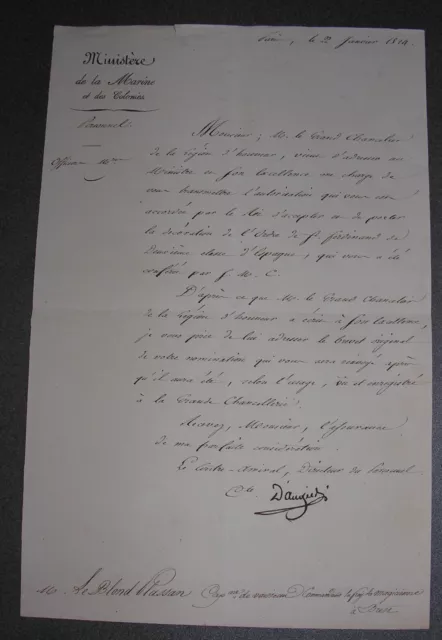 le 2 Janvier 1824.
Ministère
de la Marine
et des Colonies
Personnel
Officiers
Monsieur, M. le Grand Chancelier
de la Légion d'honneur, vient d'adresser au
Ministre et Son Excellence me charge de
vous transmettre l'autorisation qui vous est
accordée par le Roi d'accepter et de porter
la décoration de l'Ordre de St. Ferdinand de
deuxième classe d'Espagne, qui vous a été
conférée par S. M. C.
D'après ce que M. le Grand Chancelier
de la Légion d'honneur a écrit à Son Excellence,
je vous prie de lui adresser le brevet original
de votre nomination qui vous sera renvoyé après
qu'il aura été, selon l'usage, vu et enregistré
à la Grande Chancellerie.
Recevez, Monsieur, l'assurance
de ma parfaite considération.
Le Contre-Amiral, Directeur du Personnel
Cte D'augier
M. Le Blond Plassan Capne de vaisseau Commandant
à Brest